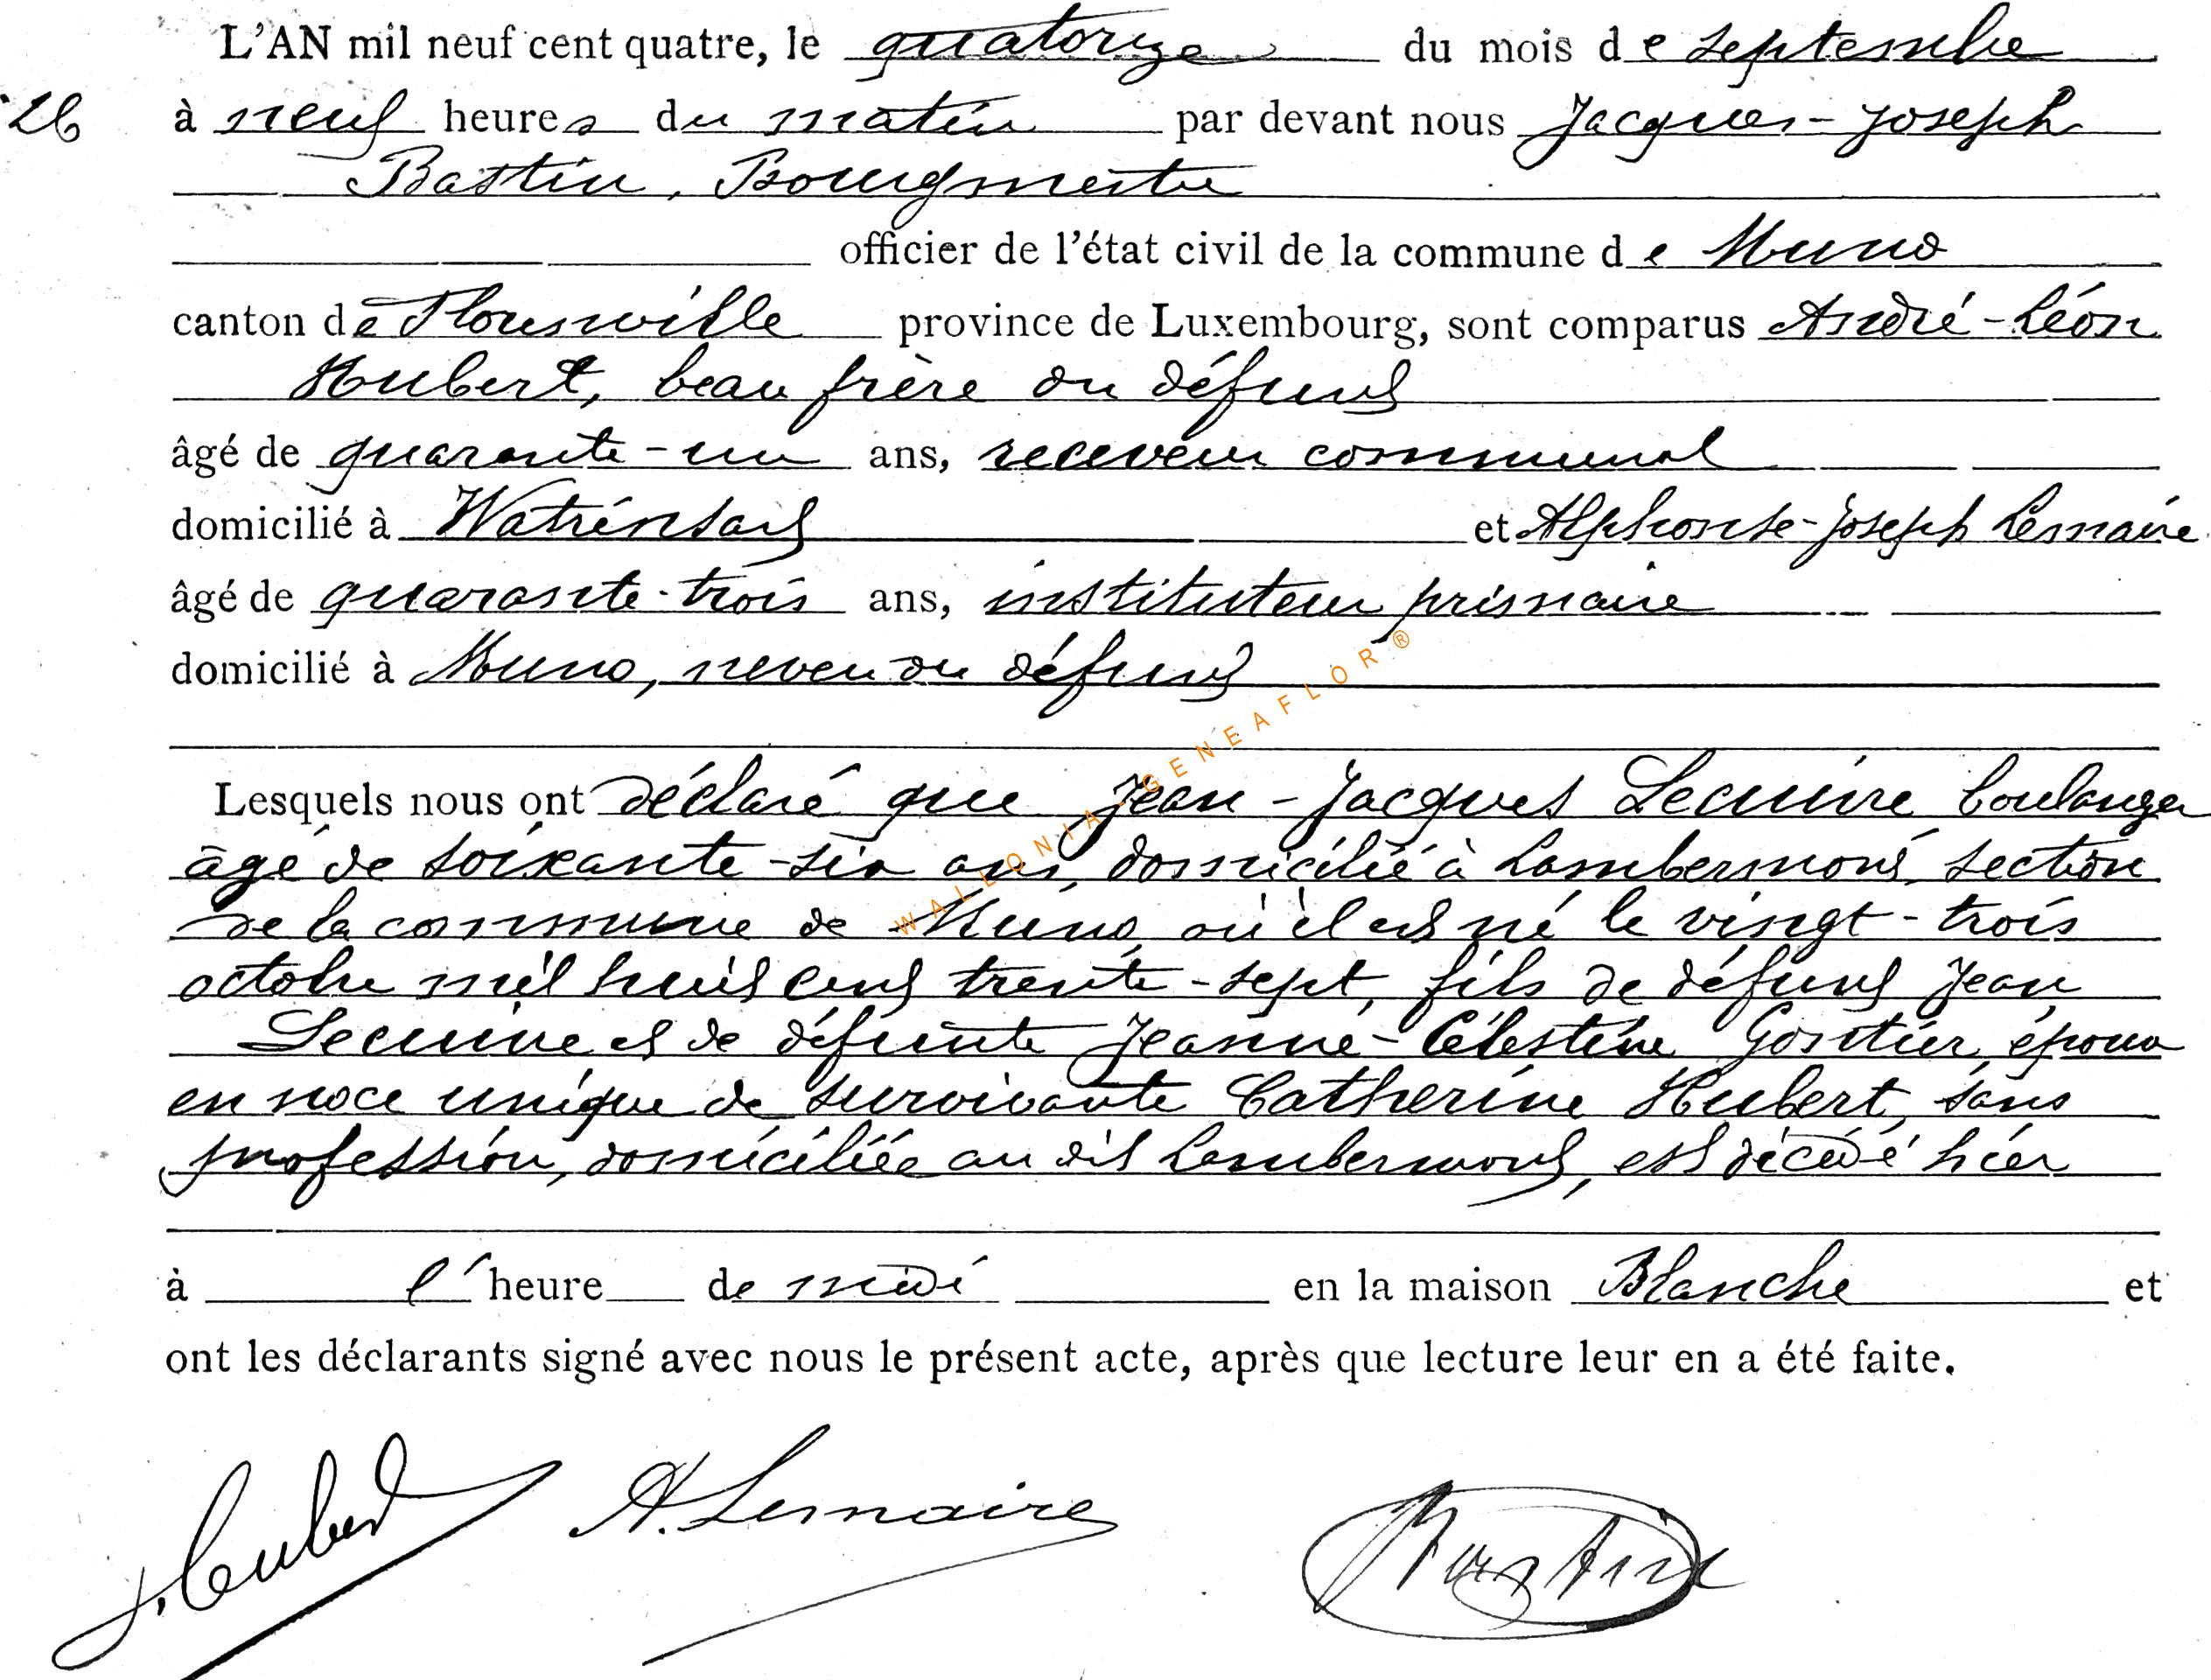 L'AN mil neuf cent quatre, le quatorze du mois de septembre
26 à neuf heures du matin par devant nous Jacques-Joseph
Bastin, Bourgmestre
officier de l'état civil de la commune de Muno
canton de Florenville province de Luxembourg, sont comparus André-Léon
Hubert, beau frère du défunt
âgé de quarante-un ans, receveur communal
domicilié à Watrinsart et Alphonse-Joseph Lemaire
âgé de quarante-trois ans, instituteur primaire
domicilié à Muno, neveu du défunt
Lesquels nous ont déclaré que Jean-Jacques Lecuivre boulanger
âgé de soixante-six ans, domicilié à Lambermont, section
de la commune de Muno, où il est né le vingt-trois
octobre mil huit cent trente-sept, fils de défunt Jean
Lecuivre et de défunte Jeanne-Célestine Gontier, époux
en noce unique de survivante Catherine Hubert, sans
profession, domiciliée au dit Lambermont, est décédé hier
à l'heure de midi en la maison Blanche et
ont les déclarants signé avec nous le présent acte, après que lecture leur en a été faite.
Hubert A. Lemaire Bastin
WALLONIA-GENEAFLOR®